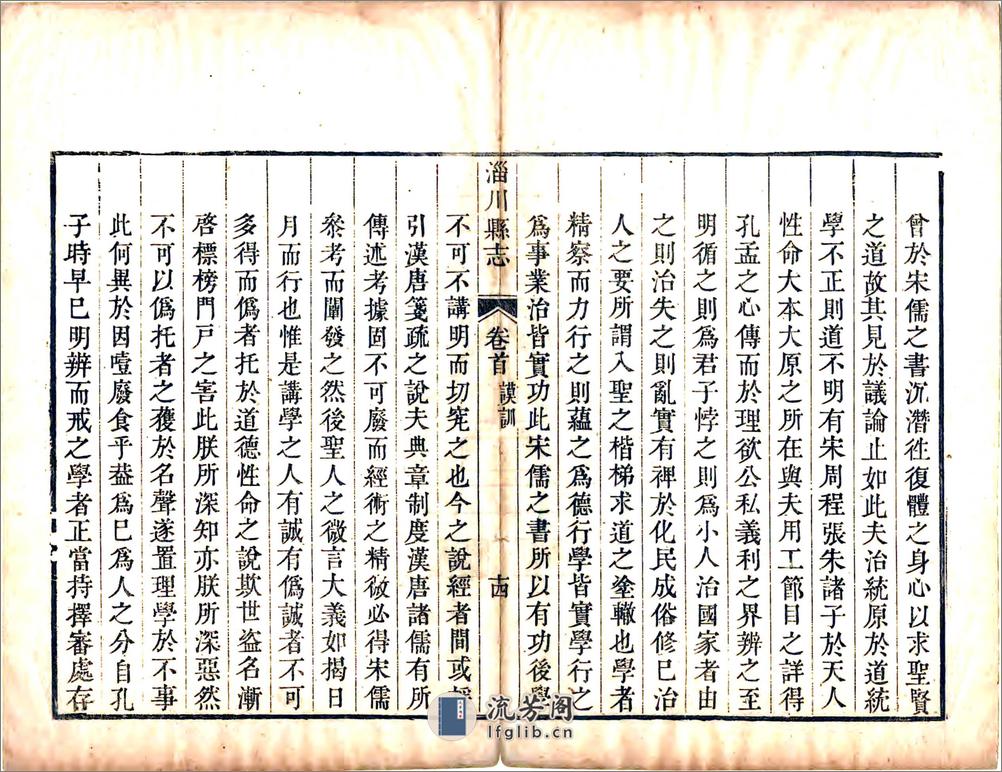 曾於宋儒之書沉潛徃復體之身心以求聖賢
之道故其見於議論止如此夫治統原於道統
學不正則道不明有宋周程張朱諸子於天人
性命大本大原之所在與夫用工節目之詳得
孔孟之心傳而於理欲公私義利之界辨之至
明循之則爲君子悖之則爲小人治國家者由
之則治失之則亂實有裨於化民成俗修巳治
人之要所謂入聖之楷梯求道之塗轍也學者
精察而力行之則蘊之爲德行學皆實學行之
爲事業治皆實功此宋儒之書所以有功後學
淄川縣志 卷首 謨訓 十四
不可不講明而切究之也今之說經者間或援
引漢唐箋疏之說夫典章制度漢唐諸儒有所
傳述考據固不可廢而經術之精微必得宋儒
叅考而闡發之然後聖人之微言大義如揭日
月而行也惟是講學之人有誠有僞誠者不可
多得而僞者托於道德性命之說欺世盜名漸
啓標榜門戶之害此朕所深知亦朕所深惡然
不可以僞托者之獲於名聲遂置理學於不事
此何異於因噎廢食乎葢爲巳爲人之分自孔
子時早巳明辨而戒之學者正當持擇審處存
流芳阁
lfglib.cn